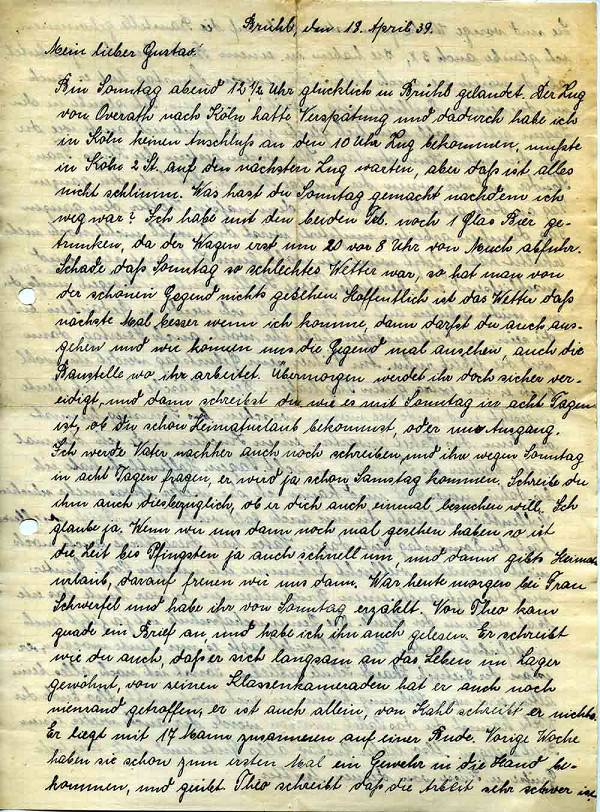 Brühl, den 18. April 39.
Mein lieber Gustav!
Bin Sonntag abend 12 ½ Uhr glücklich in Brühl gelandet. Der Zug
von Overath nach Köln hatte Verspätung und dadurch habe ich
in Köln keinen Anschluß an den 10 Uhr Zug bekommen, mußte
in Köln 2 St. auf den nächsten Zug warten, aber daß ist alles
nicht schlimm. Was hast du Sonntag gemacht nachdem ich
weg war? Ich habe mit den beiden noch 1 Glas Bier ge-
trunken, da der Wagen erst um 20 vor 8 Uhr von Much abfuhr.
Schade daß Sonntag so schlechtes Wetter war, so hat man von
der schönen Gegend nichts gesehen. Hoffentlich ist das Wetter daß
nächste Mal besser wenn ich komme, dann darfst du auch aus-
gehen und wir können uns die Gegend mal ansehen, auch die
Baustelle wo ihr arbeitet. Übermorgen werdet ihr doch sicher ver-
eidigt, und dann schreibst du wie es mit Sonntag in acht Tagen
ist, ob du schon Heimaturlaub bekommst, oder nur Ausgang.
Ich werde Vater nachher auch noch schreiben und ihn wegen Sonntag
in acht Tagen fragen, er wird ja schon Samstag kommen. Schreibe du
ihm auch diesbezüglich, ob er dich auch einmal besuchen will. Ich
glaube ja. Wenn wir uns dann noch mal gesehen haben so ist
die Zeit bis Pfingsten ja auch schnell um, und dann gibts Heimat-
urlaub, darauf freuen wir uns dann. War heute morgen bei Frau
Schwerfel und habe ihr von Sonntag erzählt. Von Theo kam
grade ein Brief an, und habe ich ihn auch gelesen. Er schreibt
wie du auch, daß er sich langsam an das Leben im Lager
gewöhnt, von seinen Klassenkameraden hat er auch noch
niemand getroffen, er ist auch allein, von Kahl schreibt er nichts.
Er liegt mit 17 Mann zusammen auf einer Bude. Vorige Woche
haben sie schon zum ersten Mal ein Gewehr in die Hand be-
kommen, und Theo schreibt daß die Arbeit sehr schwer ist